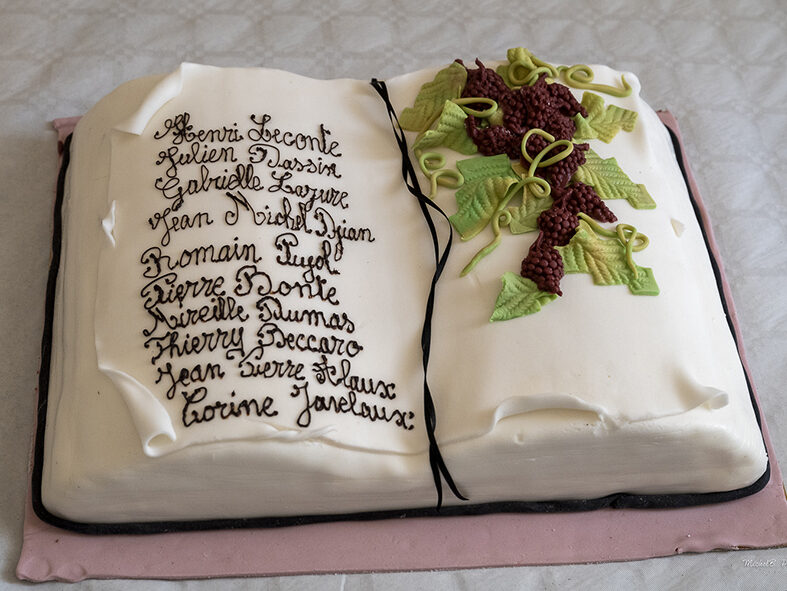 Henri Leconte
Julien Dassin
Gabrielle Lazure
Jean Michel Djian
Romain Pujol
Pierre Bonte
Mireille Dumas
Thierry Beccaro
Jean Pierre Alaux
Corine Javelaux